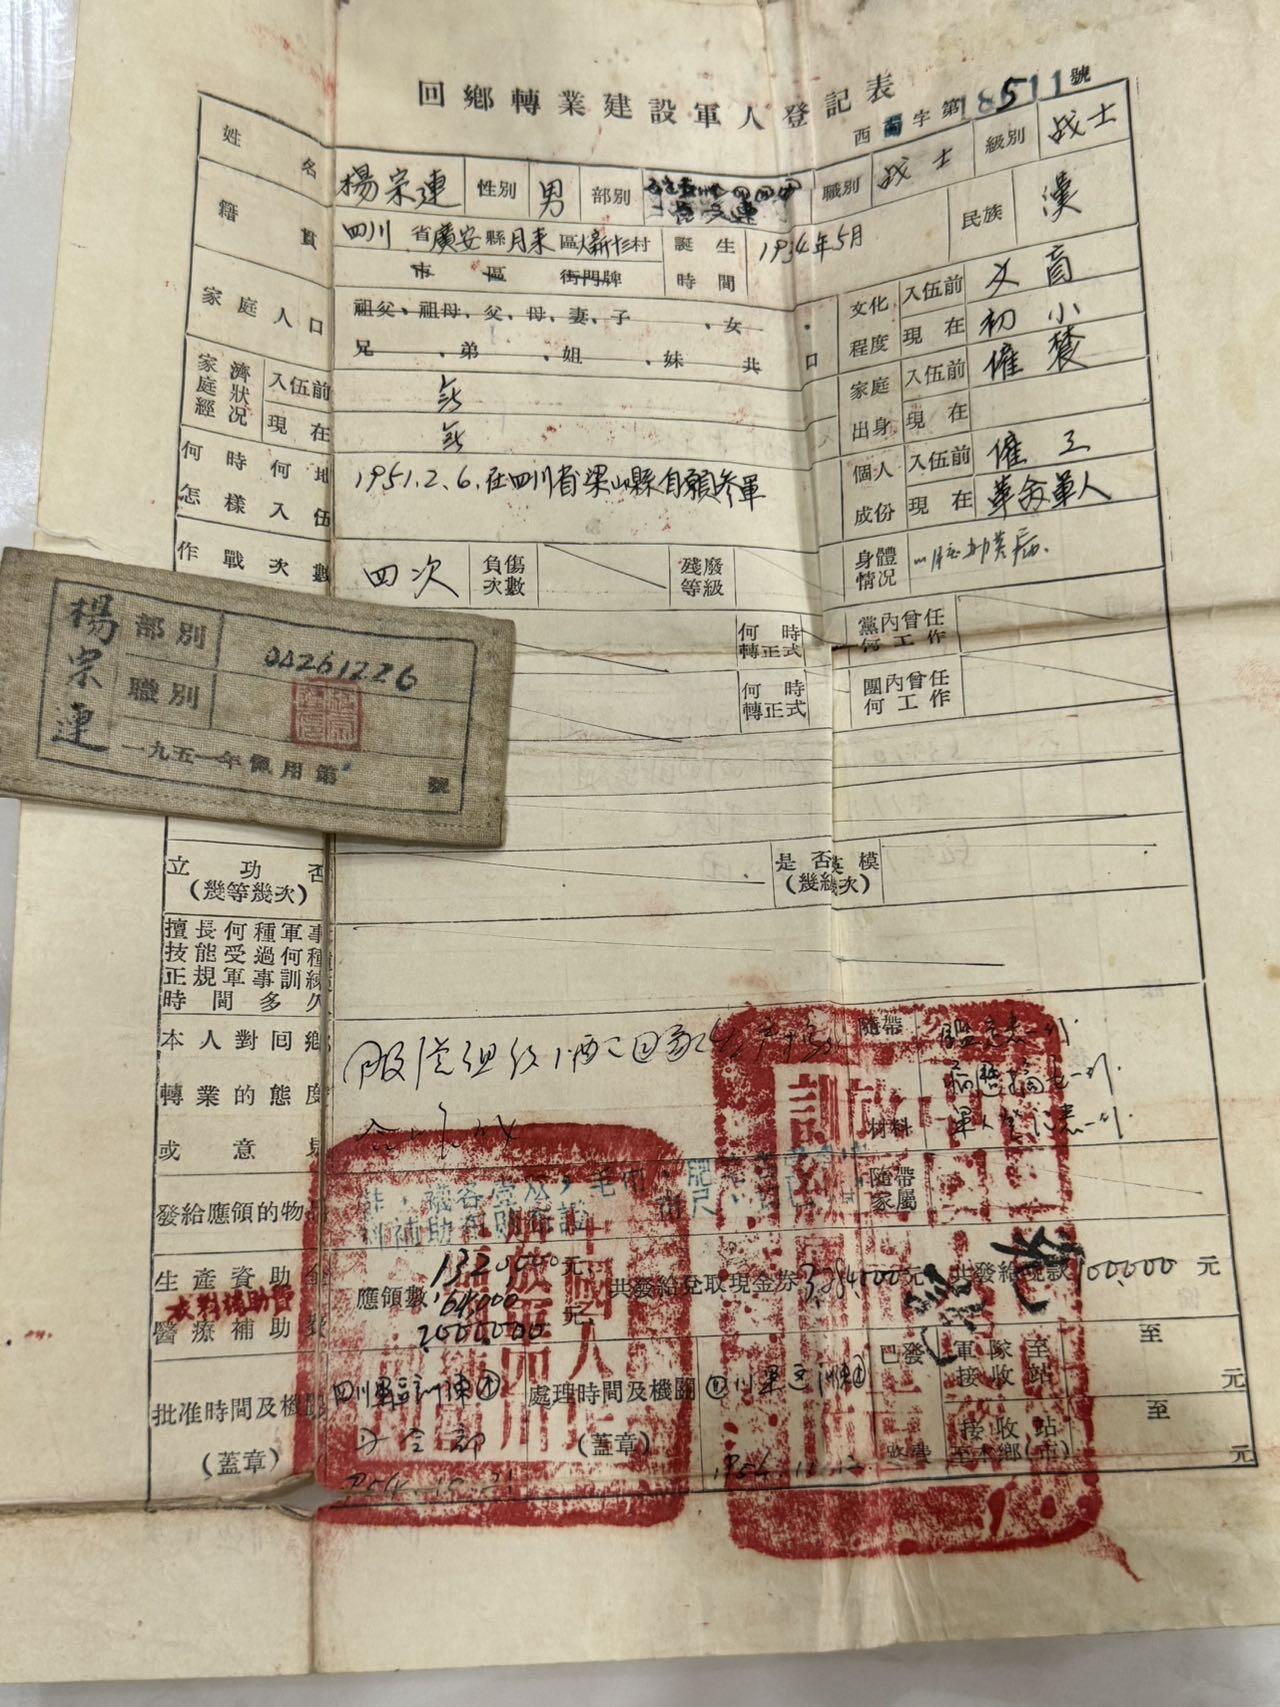 回鄉轉業建設軍人登記表
西南字第18511號
姓名 楊宗連 性別 男 部別 職別 战士 級別 战士
籍貫 四川省廣安縣月来區大新村 誕生 1934年5月 民族 漢
市 區 街門牌 時間
家庭人口 祖父、祖母、父、母、妻、子、女
兄、弟、姐、妹 共 口
文化程度 入伍前 文盲
現在 初小
家庭經濟狀況 入伍前 無
現在 無
家庭出身 入伍前 僱農
現在
何時何地怎樣入伍 1951.2.6.在四川省梁山縣自願參軍
個人成份 入伍前 僱工
現在 革命軍人
作戰次數 四次 負傷次數 殘廢等級 身體情況
何時轉正式 黨內曾任何工作
何時轉正式 團內曾任何工作
楊宗連
部別 04261226
職別
一九五一年佩用第 號
立功否(幾等幾次) 是否英模(幾級幾次)
擅長何種軍事
技能受過何種
正規軍事訓練
時間多久
本人對回鄉轉業的態度或意見 服從組織 回家生產
隨帶材料 鑑定表一份
軍人登記表一份
發給應領的物品 隨帶家屬
生產資助金 1320000元
衣料補助費
醫療補助費 2000000元
應領數
共發給兌取現金券 元 共發給現款 100000元
批准時間及機關(蓋章) 四川軍區訓練
司令部
處理時間及機關(蓋章) 四川軍區訓練
已發路費 軍隊至接收站 至 元
接收站至本鄉(市) 至 元